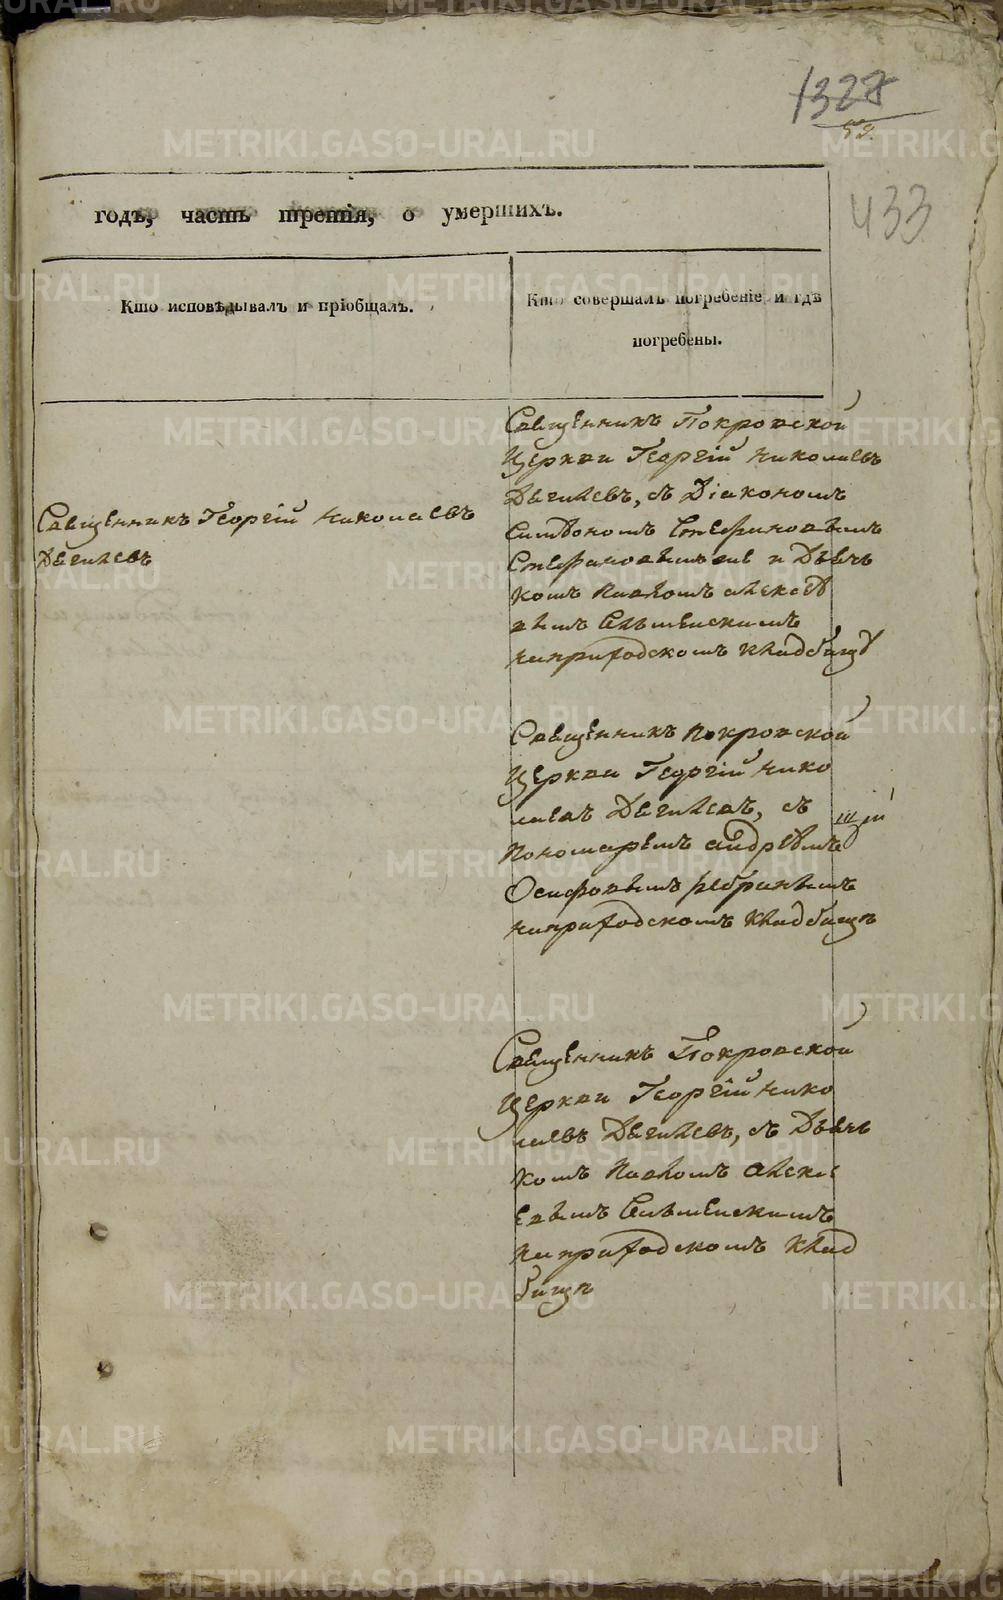 1328
59.
433
годъ, часть третія, о умершихъ.
Кто исповѣдывалъ и пріобщалъ.
Кто совершалъ погребеніе и гдѣ
погребены.
Священникъ Георгій Николаевъ
Дягилевъ
Священникъ Покровской
Церкви Георгій Николаевъ
Дягилевъ, съ Діакономъ
Стефановымъ
и Дьяч
комъ Павломъ Алексѣе
вымъ
на приходскомъ кладбищѣ
Священникъ Покровской
Церкви Георгій Нико
лаевъ Дягилевъ, съ
Пономаремъ Андрѣемъ
Осиповымъ
на приходскомъ кладбищѣ
Священникъ Покровской
Церкви Георгій Нико
лаевъ Дягилевъ, съ Дьяч
комъ Павломъ Алексѣ
евымъ
на приходскомъ клад
бищѣ
METRIKI.GASO-URAL.RU